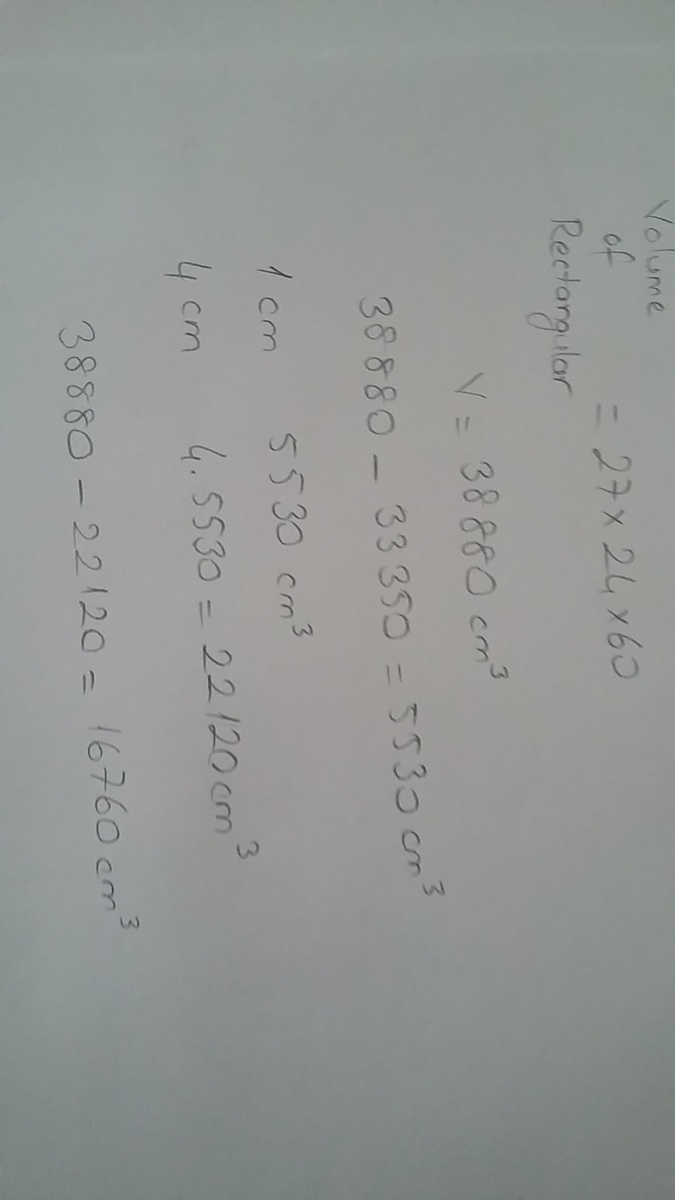 Volume
of
Rectangular
= 27 x 24 x 60
V = 38880 cm³
38880 - 33350 = 5530 cm³
1 cm 5530 cm³
4 cm 4.5530 = 22120 cm³
38880 - 22120 = 16760 cm³